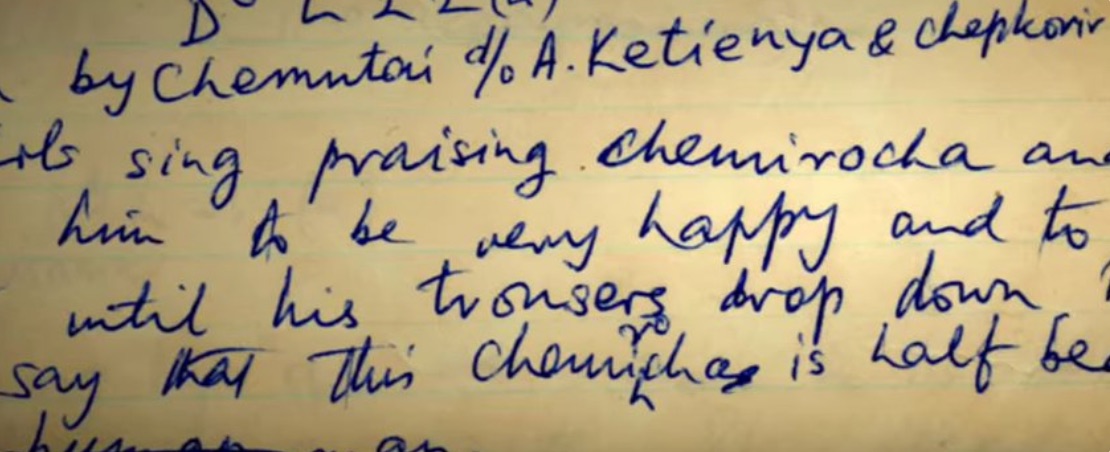 by Chemutai d/o A. Ketienya & chepkorir
sing praising chemirocha
him to be very happy and to
until his trousers drop down
say that this Chemirocha is half